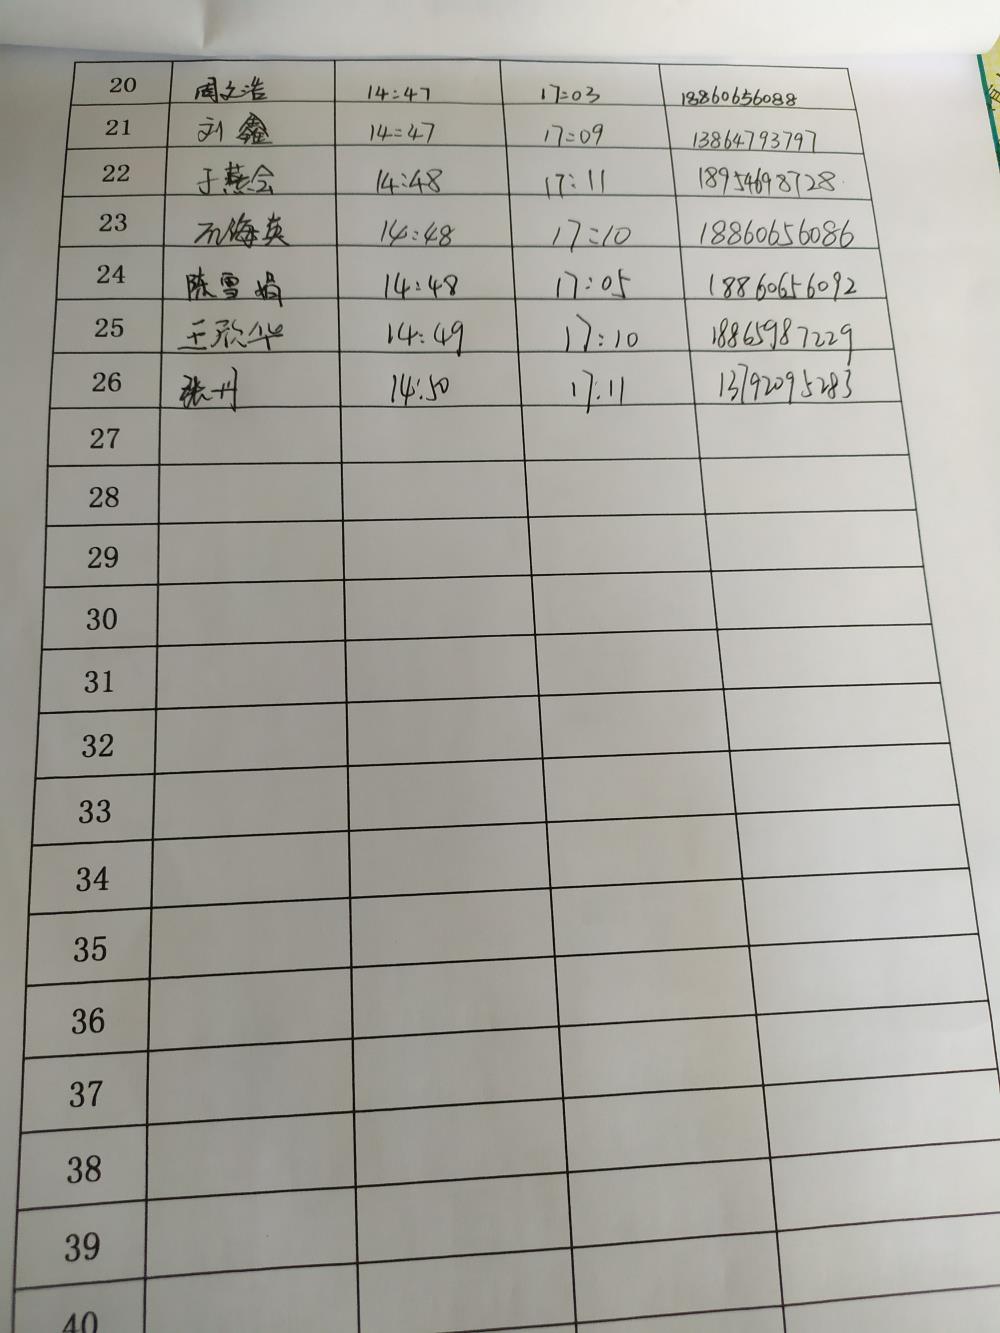 20 周文浩 14:47 17:03 18860656088
21 刘鑫 14:47 17:09 13864793797
22 于燕会 14:48 17:11 18954698728
23 海英 14:48 17:10 18860656086
24 陈雪娟 14:48 17:05 18860656092
25 王欣华 14:49 17:10 18865987229
26 张丹 14:50 17:11 13792095283
27
28
29
30
31
32
33
34
35
36
37
38
39
40